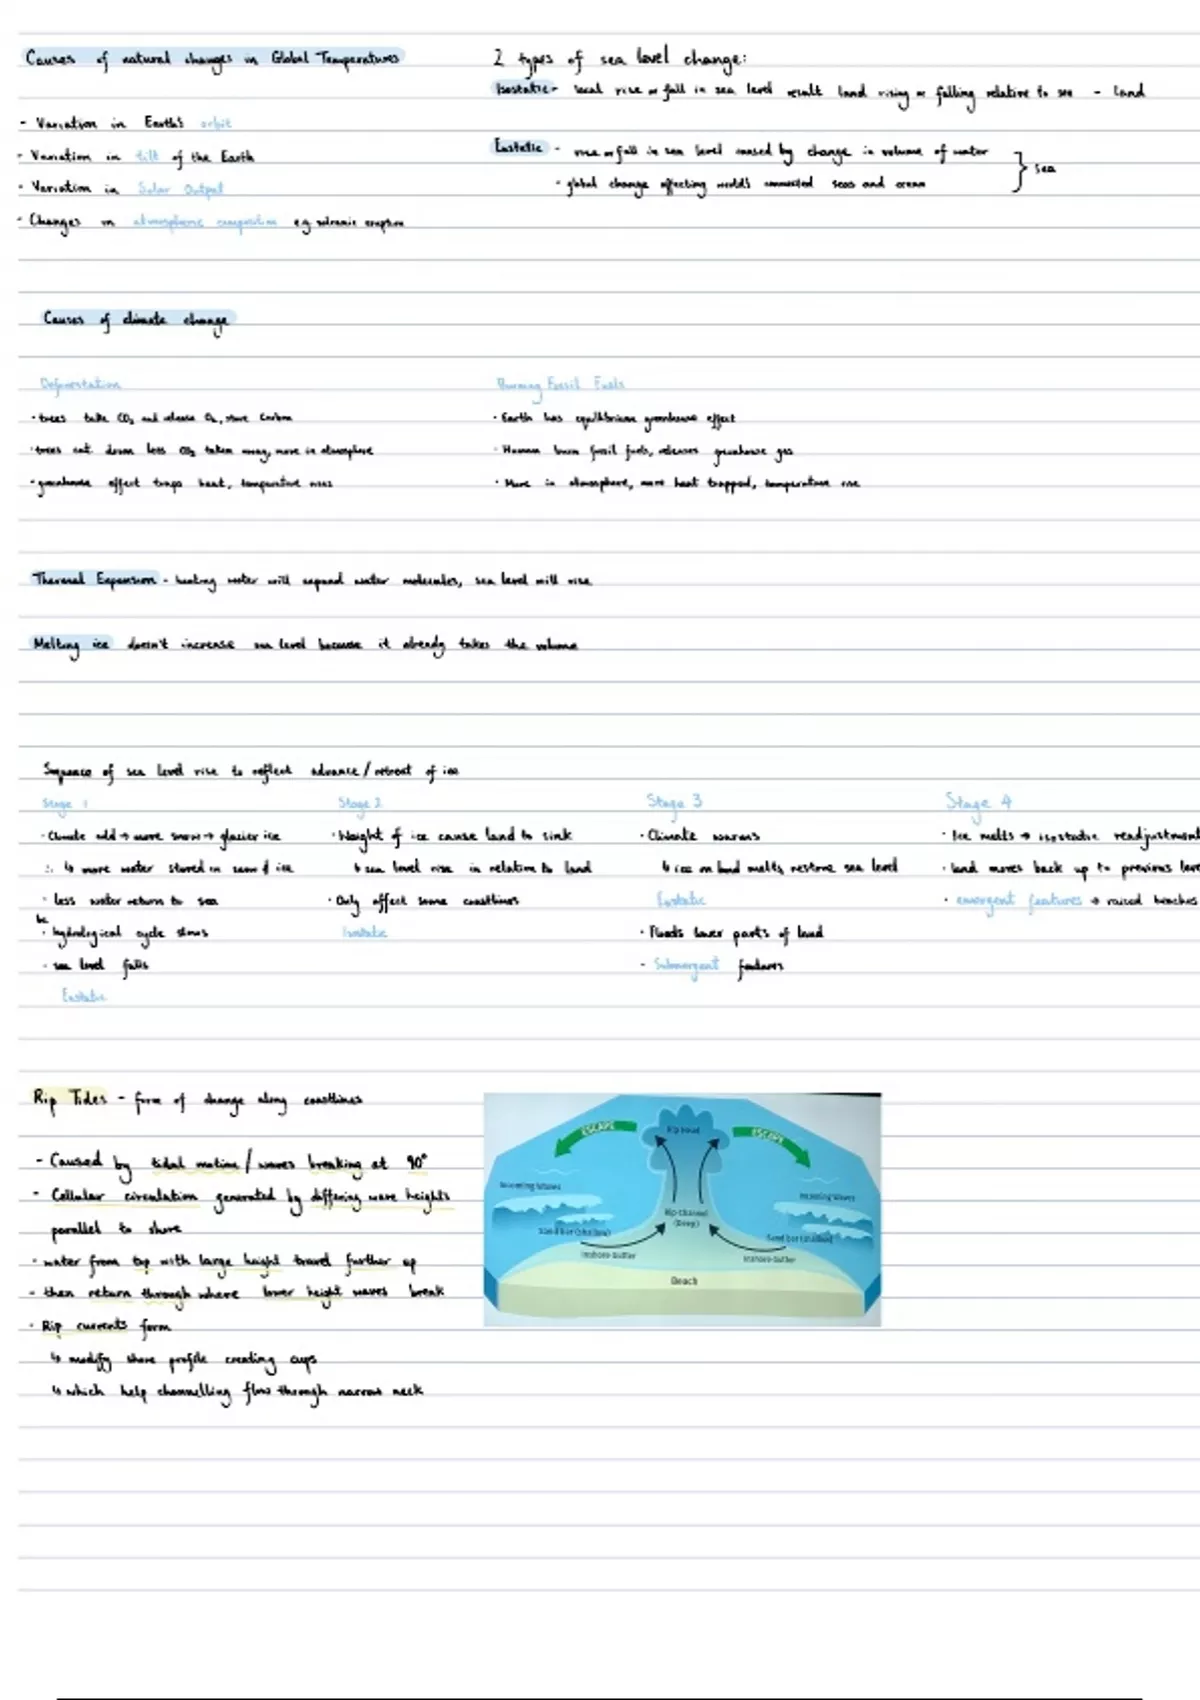 Causes of natural changes in Global Temperatures
- Variation in Earth's orbit
- Variation in tilt of the Earth
- Variation in Solar Output
- Changes in atmospheric composition e.g volcanic eruption
2 types of sea level change:
Isostatic - local rise or fall in sea level result land rising or falling relative to sea - land
Eustatic - rise or fall in sea level caused by change in volume of water
- global change affecting world's connected seas and ocean
} sea
Causes of climate change
Deforestation
· trees take CO2 and release O2, store carbon
· trees cut down less CO2 taken away, more in atmosphere
· greenhouse effect traps heat, temperature rises
Burning Fossil Fuels
· Earth has equilibrium greenhouse effect
· Human burn fossil fuels, releases greenhouse gas
· More in atmosphere, more heat trapped, temperature rise
Thermal Expansion - heating water will expand water molecules, sea level will rise
Melting ice doesn't increase sea level because it already takes the volume
Sequence of sea level rise to reflect advance/retreat of ice
Stage 1
· Climate cold → more snow → glacier ice
∴ ↳ more water stored in snow & ice
· less water return to sea
bc
· hydrological cycle slows
· sea level falls
Eustatic
Stage 2
· Weight of ice cause land to sink
↳ sea level rise in relation to land
· Only affect some coastlines
Isostatic
Stage 3
· Climate warms
↳ ice on land melts, restore sea level
Eustatic
· Floods lower parts of land
- Submergent features
Stage 4
· Ice melts → isostatic readjustment
· land moves back up to previous leve
· emergent features → raised beaches
Rip Tides - form of change along coastlines
- Caused by tidal motion / waves breaking at 90°
- Cellular circulation generated by differing wave heights
parallel to shore
· water from top with large height travel further up
- then return through where lower height waves break
· Rip currents form
↳ modify shore profile creating cups
↳ which help channelling flow through narrow neck
Rip head
ESCAPE
ESCAPE
Incoming Waves
Incoming Waves
Rip Channel
(Deep)
Sand bar (shallow)
Sand bar (shallow)
Inshore Gutter
Inshore Gutter
Beach